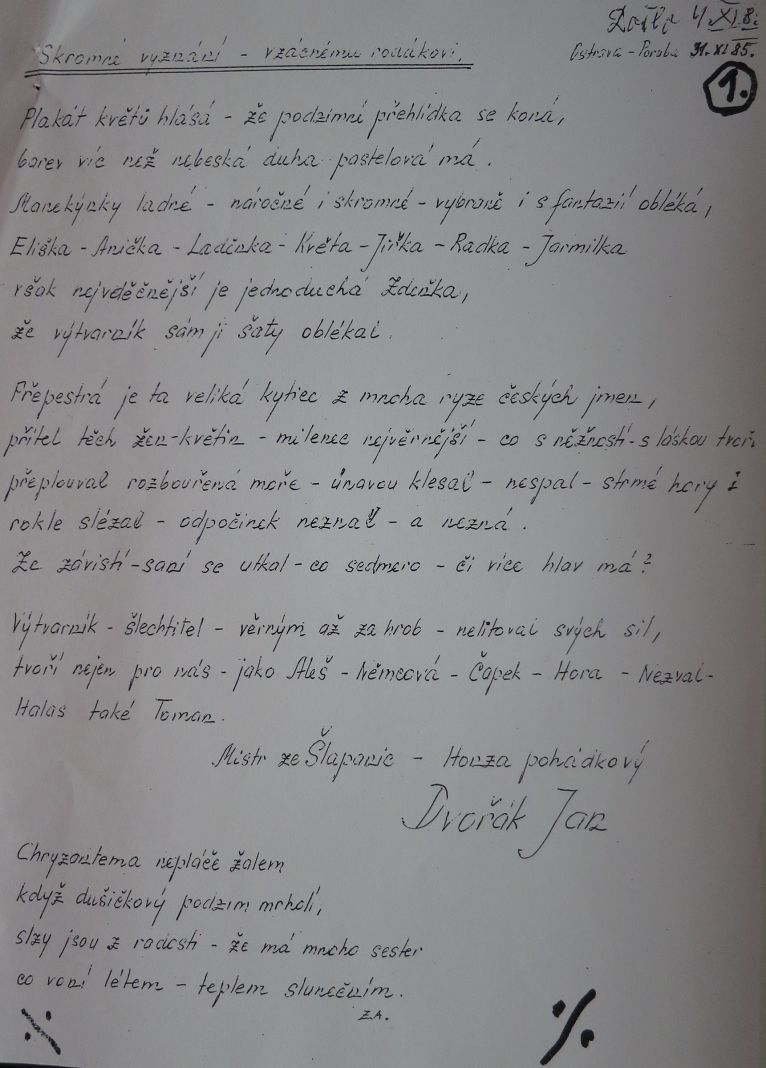 Došlo 4. XI. 8
Skromné vyznání - vzácnému rodákovi.
Ostrava - Poruba 31. XI 85.
1.
Plakát květů hlásá - že podzimní přehlídka se koná,
barev víc než nebeská duha pastelová má.
Manekýnky ladné - náročné i skromné - vybraně i s fantazií obléká,
Eliška - Anička - Ladčnka - Květa - Jiřka - Radka - Jarmilka
však nejvděčnější je jednoduchá Zdenka,
že výtvarník sám ji šaty oblékal.
Přepestrá je ta veliká kytice z mnoha ryze českých jmen,
přítel těch žen-květin - milenec nejvěrnější - co s něžností - s láskou tvoří
přeplouval rozbouřená moře - únavou klesal - nespal - strmé hory i
rokle slézal - odpočinek neznal - a nezná.
Ze závistí-saní se utkal - co sedmero - či více hlav má?
Výtvarník - šlechtitel - věrným až za hrob - nelitoval svých sil,
tvoří nejen pro nás - jako Aleš - Němcová - Čapek - Hora - Nezval -
Halas také Toman.
Mistr ze Šlapanic - Honza pohádkový
Dvořák Jan
Chryzantema nepláče žalem
když dušičkový podzim mrholí,
slzy jsou z radosti - že má mnoho sester
co voní létem - teplem slunečním.
Z.A.